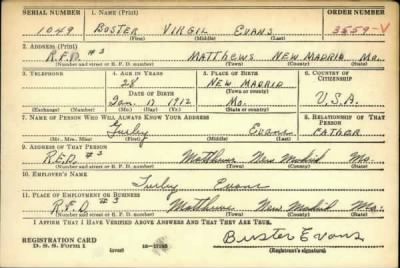 SERIAL NUMBER 1. NAME (Print) ORDER NUMBER
1049 BOSTER VIRGIL EVANS 3559-V
(First) (Middle) (Last)
2. ADDRESS (Print)
R.F.D. #3 MATTHEWS NEW MADRID Mo.
(Number and street or R. F. D. number) (Town) (County) (State)
3. TELEPHONE 4. AGE IN YEARS 5. PLACE OF BIRTH 6. COUNTRY OF CITIZENSHIP
28 NEW MADRID
DATE OF BIRTH (Town or county)
Jan. 1912 Mo. U.S.A.
(Exchange) (Number) (Mo.) (Day) (Yr.) (State or country)
7. NAME OF PERSON WHO WILL ALWAYS KNOW YOUR ADDRESS 8. RELATIONSHIP OF THAT PERSON
Turley Evans FATHER
(Mr., Mrs., Miss) (First) (Middle) (Last)
9. ADDRESS OF THAT PERSON
R.F.D. #3 Matthews New Madrid Mo.
(Number and street or R. F. D. number) (Town) (County) (State)
10. EMPLOYER'S NAME
Turley Evans
11. PLACE OF EMPLOYMENT OR BUSINESS
R.F.D #3 Matthews New Madrid Mo.
(Number and street or R. F. D. number) (Town) (County) (State)
I AFFIRM THAT I HAVE VERIFIED ABOVE ANSWERS AND THAT THEY ARE TRUE.
REGISTRATION CARD
D. S. S. FORM 1 (over) Buster Evans
(Registrant's signature)